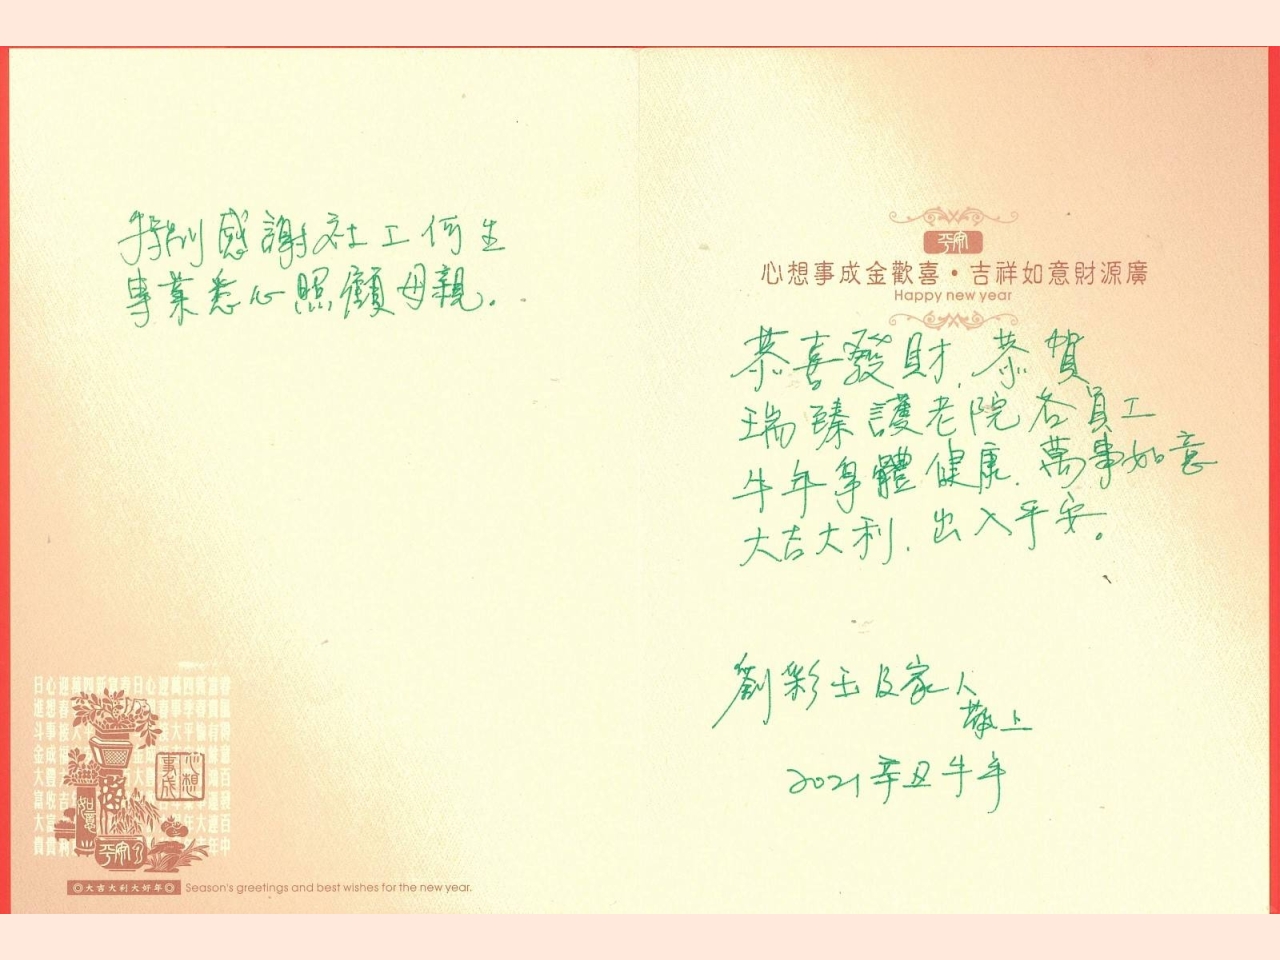 特別感謝社工何生
專業悉心照顧母親。
平安
心想事成金歡喜・吉祥如意財源廣
Happy new year
恭喜發財,恭賀
瑞臻護老院各員工
牛年身體健康,萬事如意
大吉大利,出入平安。
劉彩玉及家人
敬上
2021辛丑牛年
心想
事成
如意
平安
大吉大利大好年
Season's greetings and best wishes for the new year.